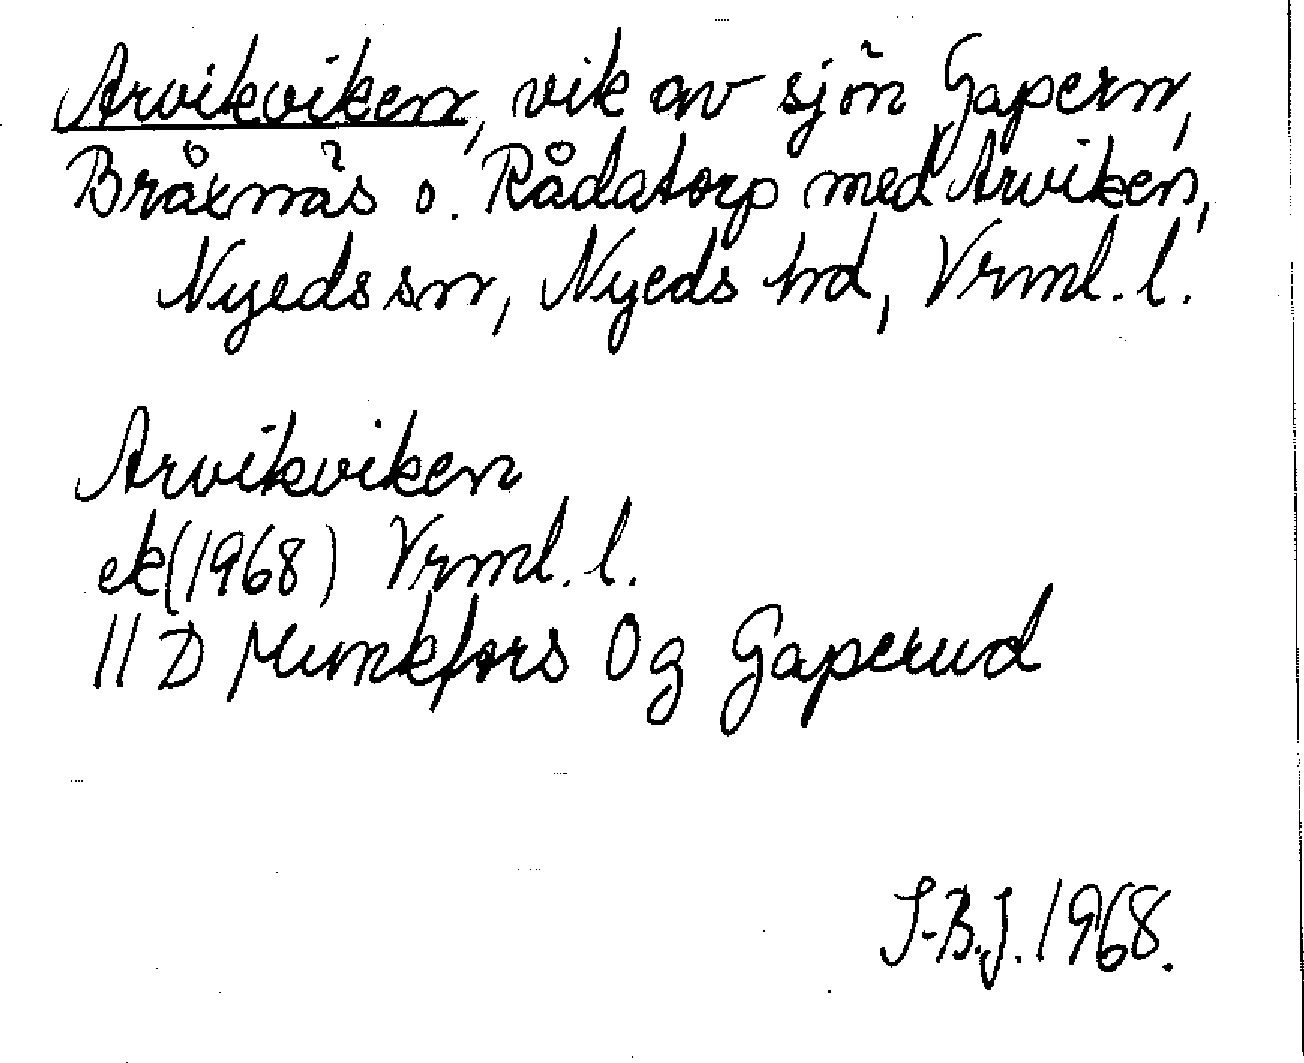 Arvikviken, vik av sjön Gapern,
Bråxnäs o. Rådatorp med Arviken,
Nyeds sn, Nyeds hd, Vrml. l.
Arvikviken
ek (1968) Vrml. l.
11 D Munkfors 0g Gaperud
I-B.J. 1968.